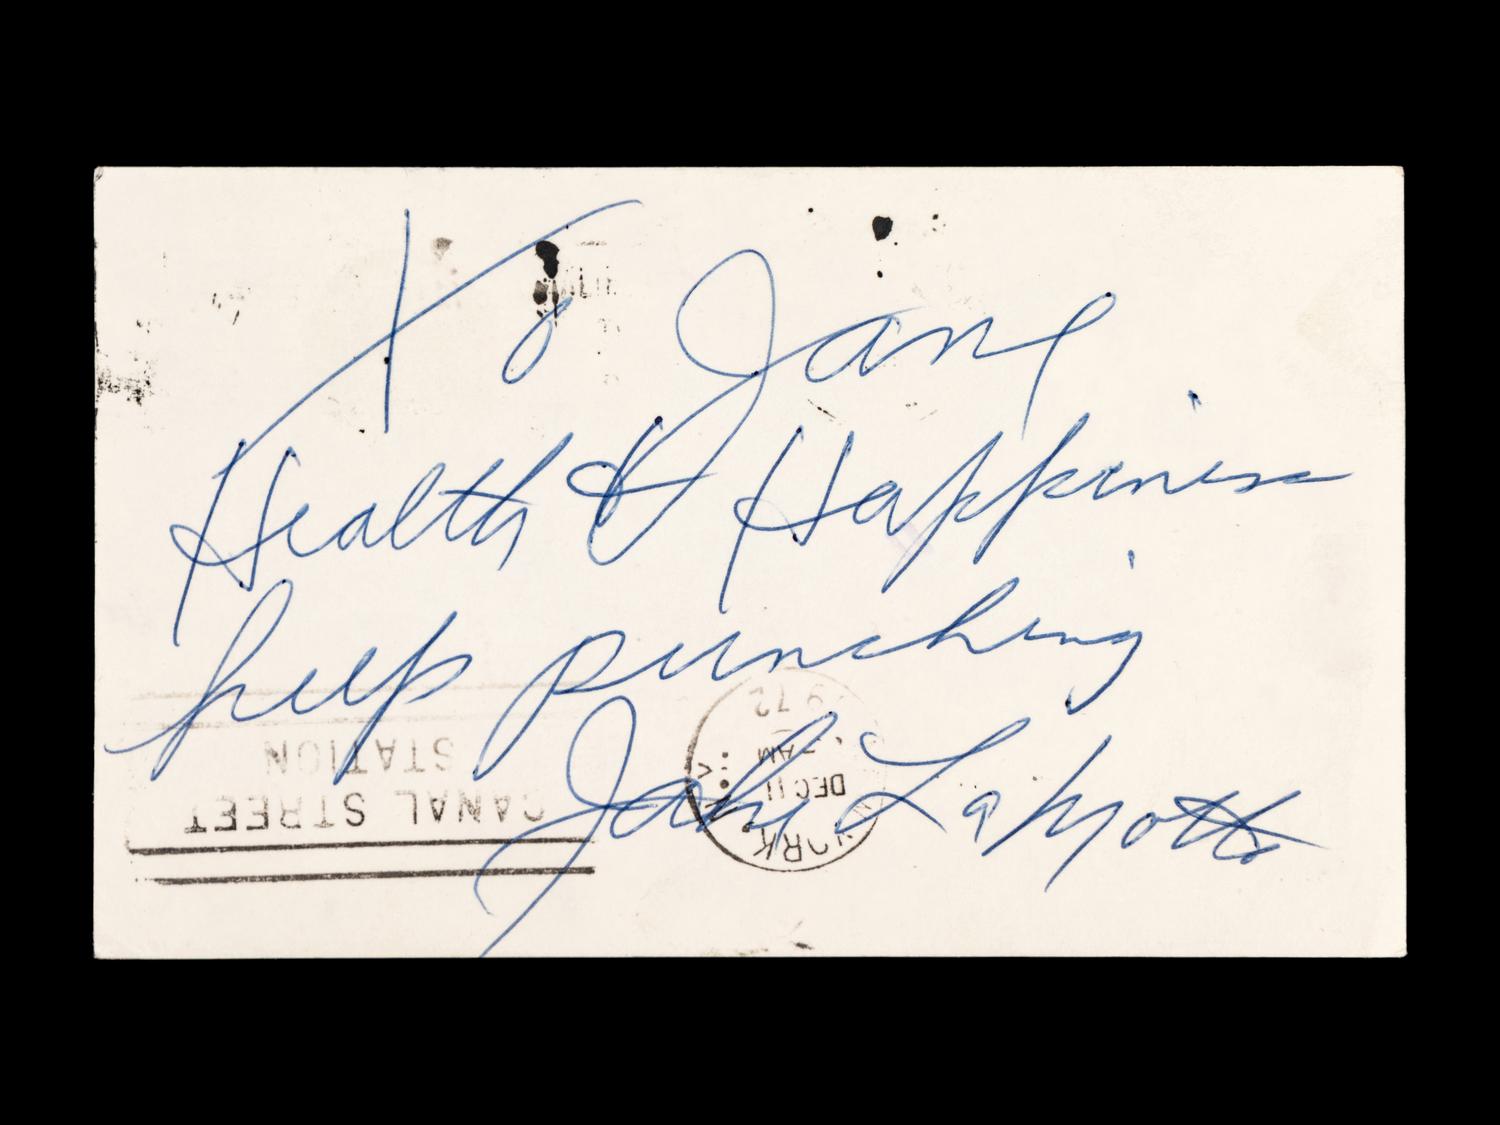 To Jane
Health & Happiness
keep punching
Jake LaMotta
1972
AM
DEC 11
YORK, N.Y.
CANAL STREET
STATION